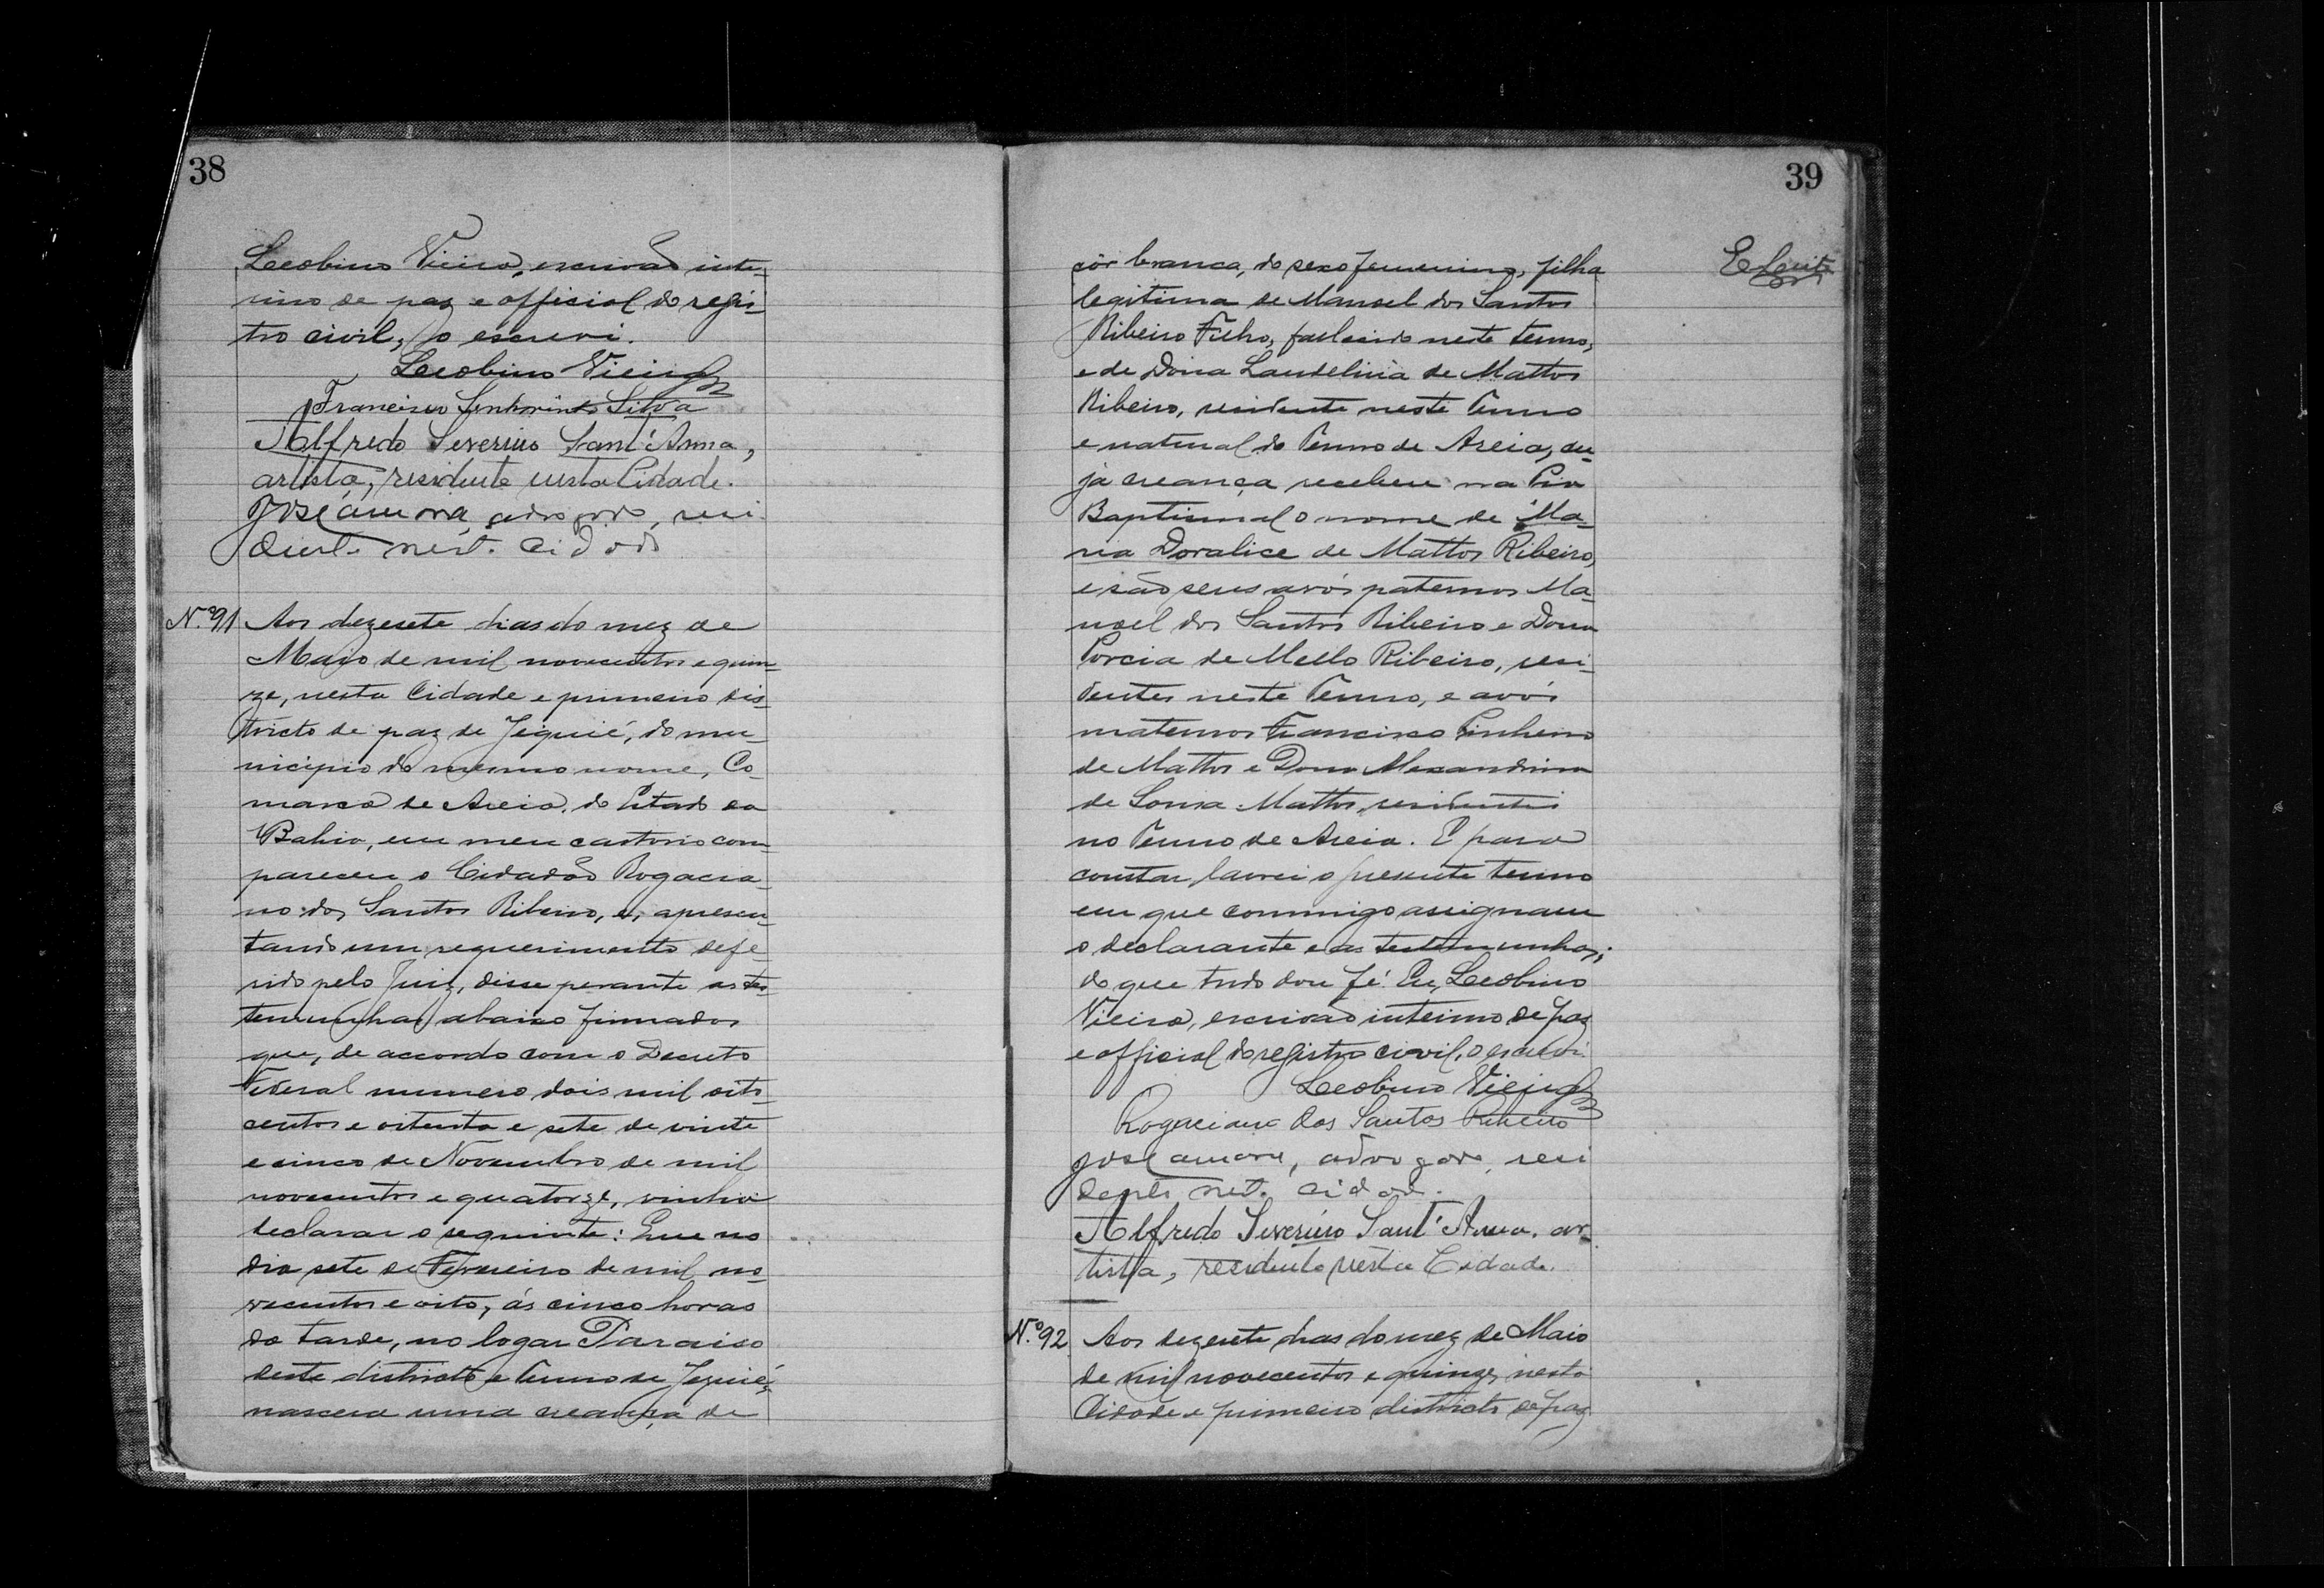 38
Leobino Vieira, escrivão inte-
rino de paz e official do regis-
tro civil, o escrevi.
Leobino Vieira
Francisco Senhorinho Silva
Alfredo Severino Sant'Anna,
artista, residente nesta Cidade.
José Amora, advogado, resi
dente nest. cidade
N.º 91 Aos dezesete dias do mez de
Maio de mil novecentos e quin-
ze, nesta Cidade e primeiro dis-
tricto de paz de Jequié, do mu-
nicipio do mesmo nome, Co-
marca de Areia, do Estado da
Bahia, em meu cartorio com-
pareceu o Cidadão Rogacia-
no dos Santos Ribeiro, e, apresen-
tando um requerimento defe-
rido pelo Juiz, disse perante as tes-
temunhas abaixo firmadas
que, de accordo com o Decreto
Federal numero dois mil oito-
centos e oitenta e sete de vinte
e cinco de Novembro de mil
novecentos e quatorze, vinha
declarar o seguinte: Que no
dia sete de Fevereiro de mil no-
vecentos e oito, ás cinco horas
da tarde, no logar Paraiso
deste districto e Termo de Jequié,
nascera uma creança de
39
côr branca, do sexo femenino, filha
legitima de Manoel dos Santos
Ribeiro Filho, fallecido neste termo,
e de Dona Laudelina de Mattos
Ribeiro, residente neste Termo
e natural do Termo de Areia, cu-
ja creança recebeu na Pia
Baptismal o nome de Ma-
ria Doralice de Mattos Ribeiro,
e são seus avós paternos Ma-
noel dos Santos Ribeiro e Dona
Porcia de Mello Ribeiro, resi-
dentes neste Termo, e avós
maternos Francisco Pinheiro
de Mattos e Dona Alexandrina
de Sousa Mattos, residentes
no Termo de Areia. E para
constar, lavrei o presente termo
em que commigo assignam
o declarante e as testemunhas;
do que tudo dou fé. Eu, Leobino
Vieira, escrivão interino de paz
e official do registro civil, o escrevi.
Leobino Vieira
Rogaciano dos Santos Ribeiro
José Amora, advogado, resi
dente nest. cidade.
Alfredo Severino Sant'Anna, ar-
tista, residente nesta Cidade.
N.º 92 Aos dezesete dias do mez de Maio
de mil novecentos e quinze, nesta
Cidade e primeiro districto de paz